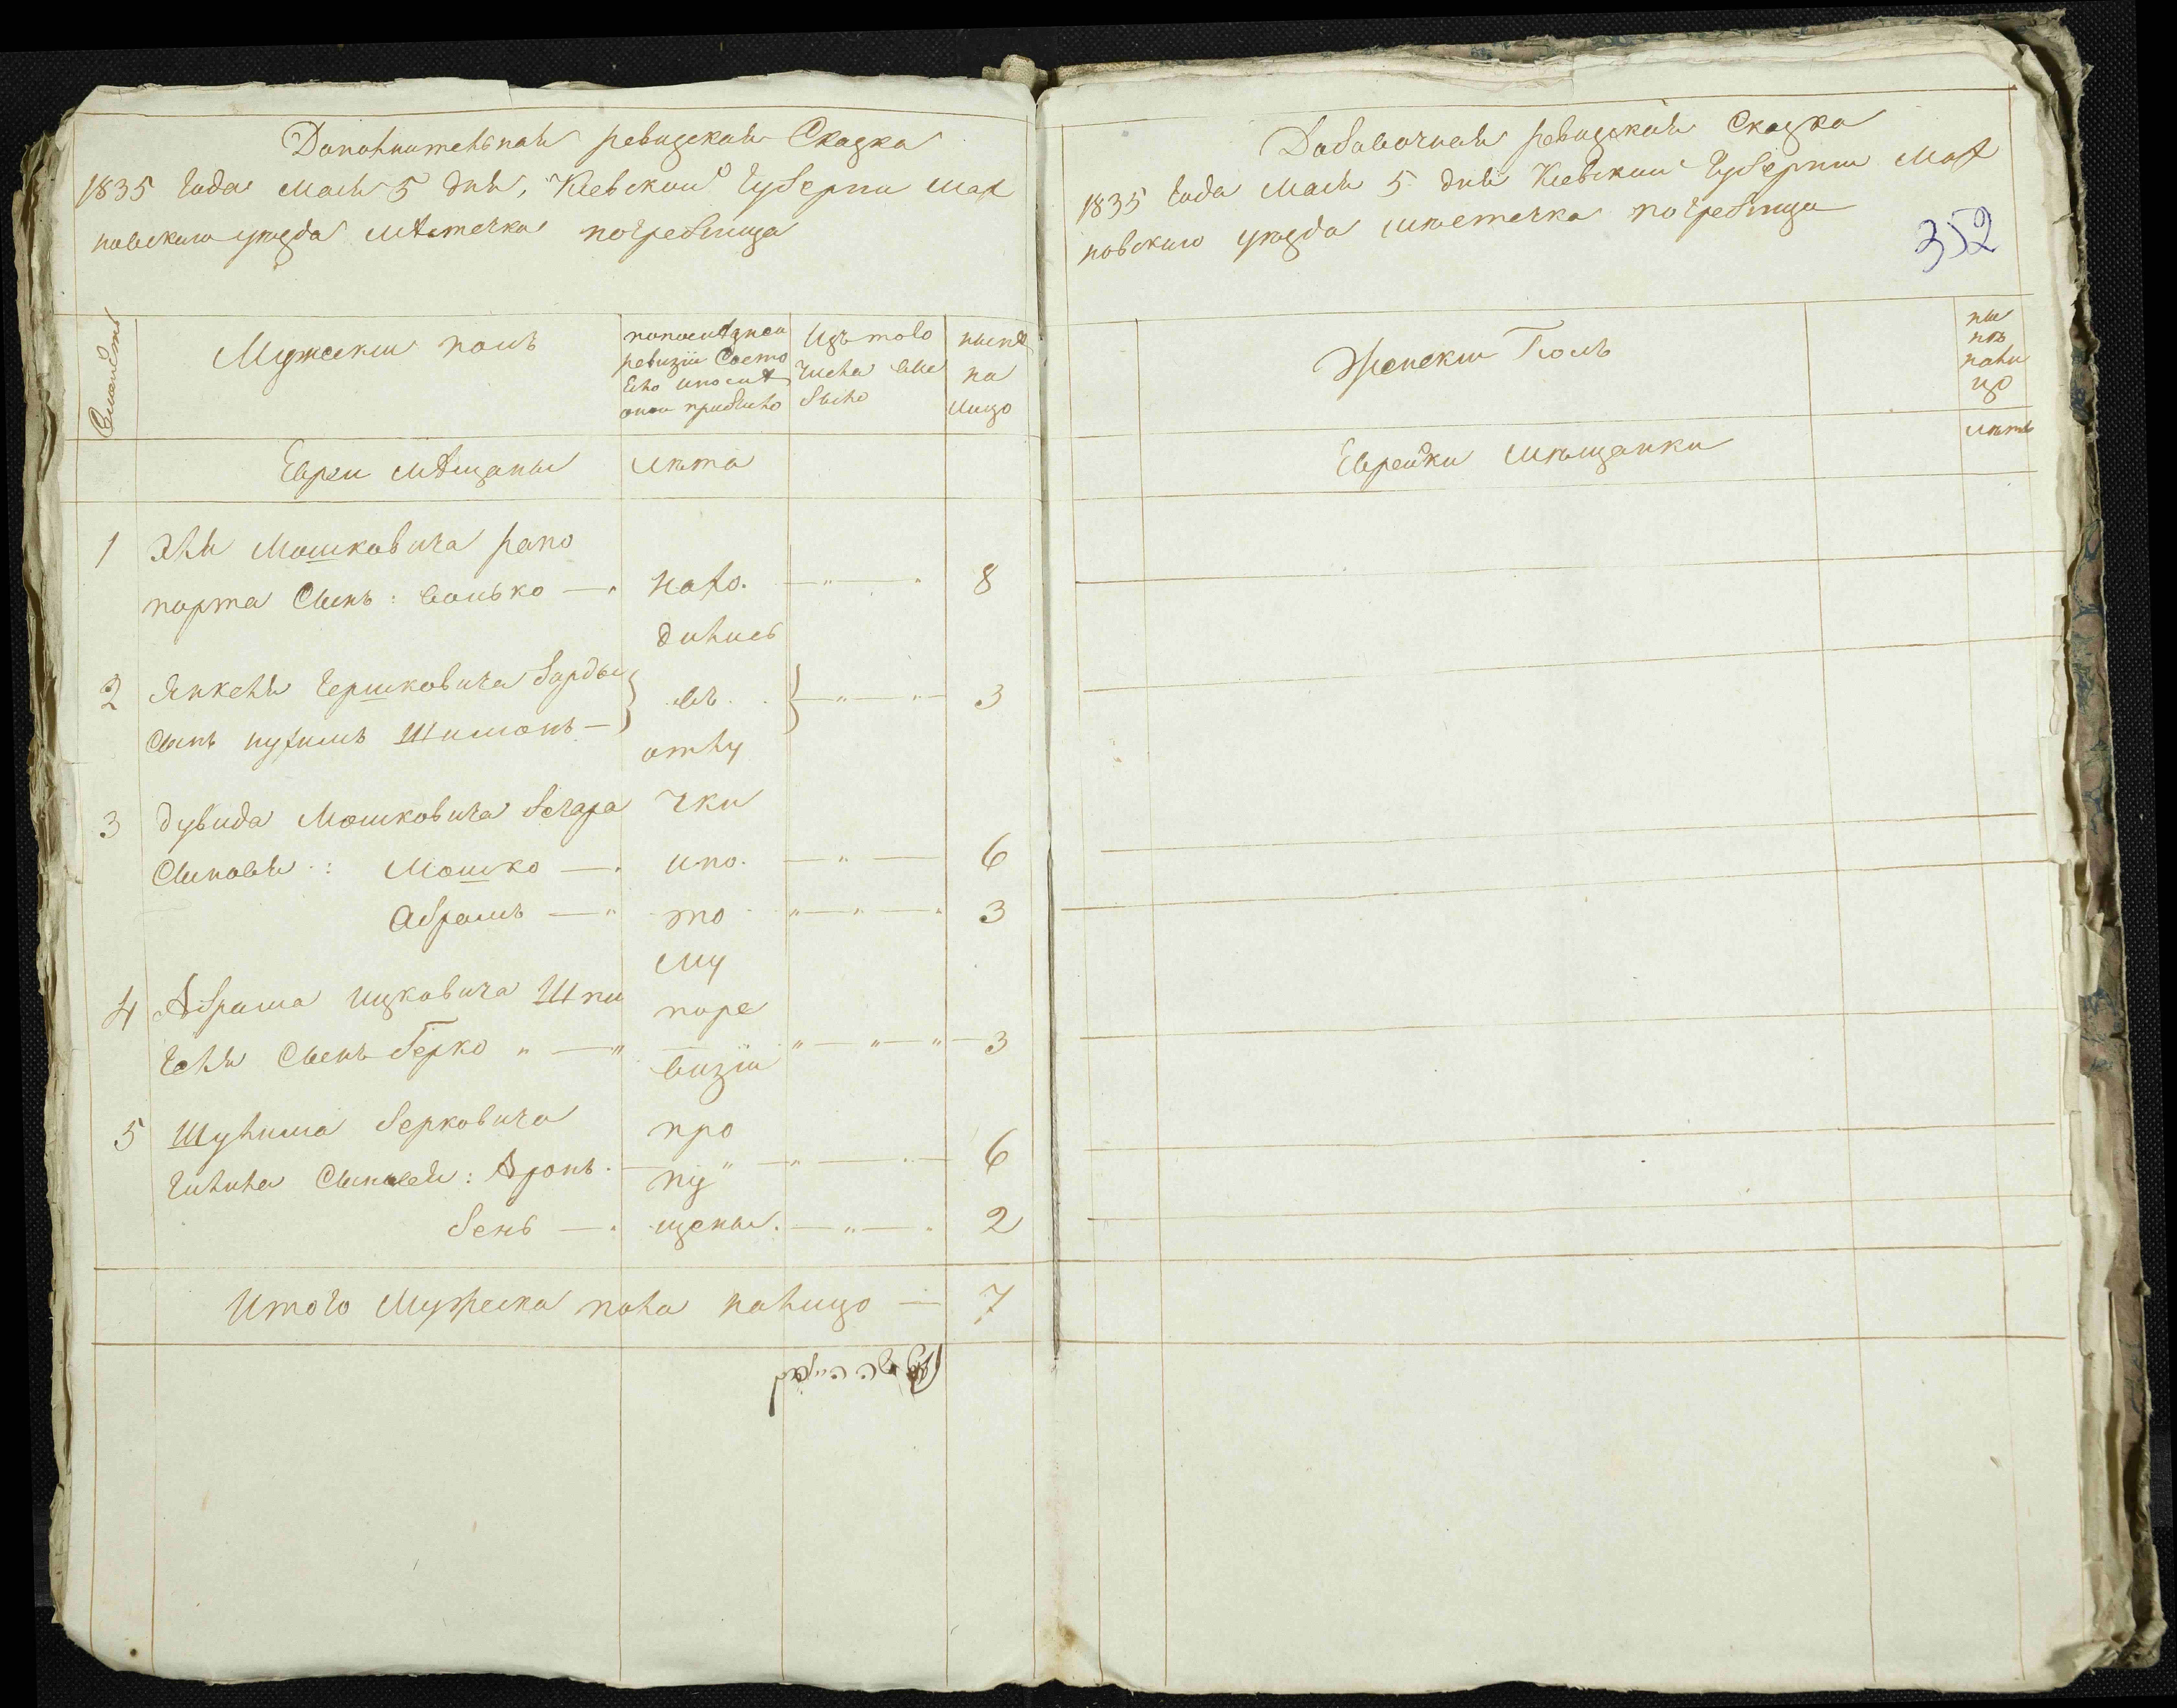 Дополнительная ревизская Сказка
1835 Года Мая 5 дня, Киевской Губернии Мах
новского уезда мѣстечка погребища
Семейства
Мужеский полъ
по последней
ревизии Состо
яло и после
оной прибыло
Изъ того
числа выбыло
нынѣ
на
лицо
Евреи мѣщаны
лѣта
1 Эля Мошковича рапо
порта Сынъ: волько — наро. — 8
дились
2 Янкеля Гершковича барды
въ. — 3
Сынъ нухимъ Шимонъ —
отлу
3 дувида Мошковича бегара чки
Сыновья: Мошко — и по. — 6
Абрамъ — то — 3
му
4 Абрама ицковича Шпи
поре
геля Сынъ берко — 3
визии
5 Шулима берковича про
Сыновья: Аронъ. — 6
пу
бень — щены. — 2
Итого Мужеска пола налицо — 7
Добавочная ревизская Сказка
1835 Года Мая 5 дня Киевской Губернии Мах
новского уезда мѣстечка погребища
352
Женский Полъ
ны
нѣ
нали
цо
Еврейки мѣщанки
лѣта